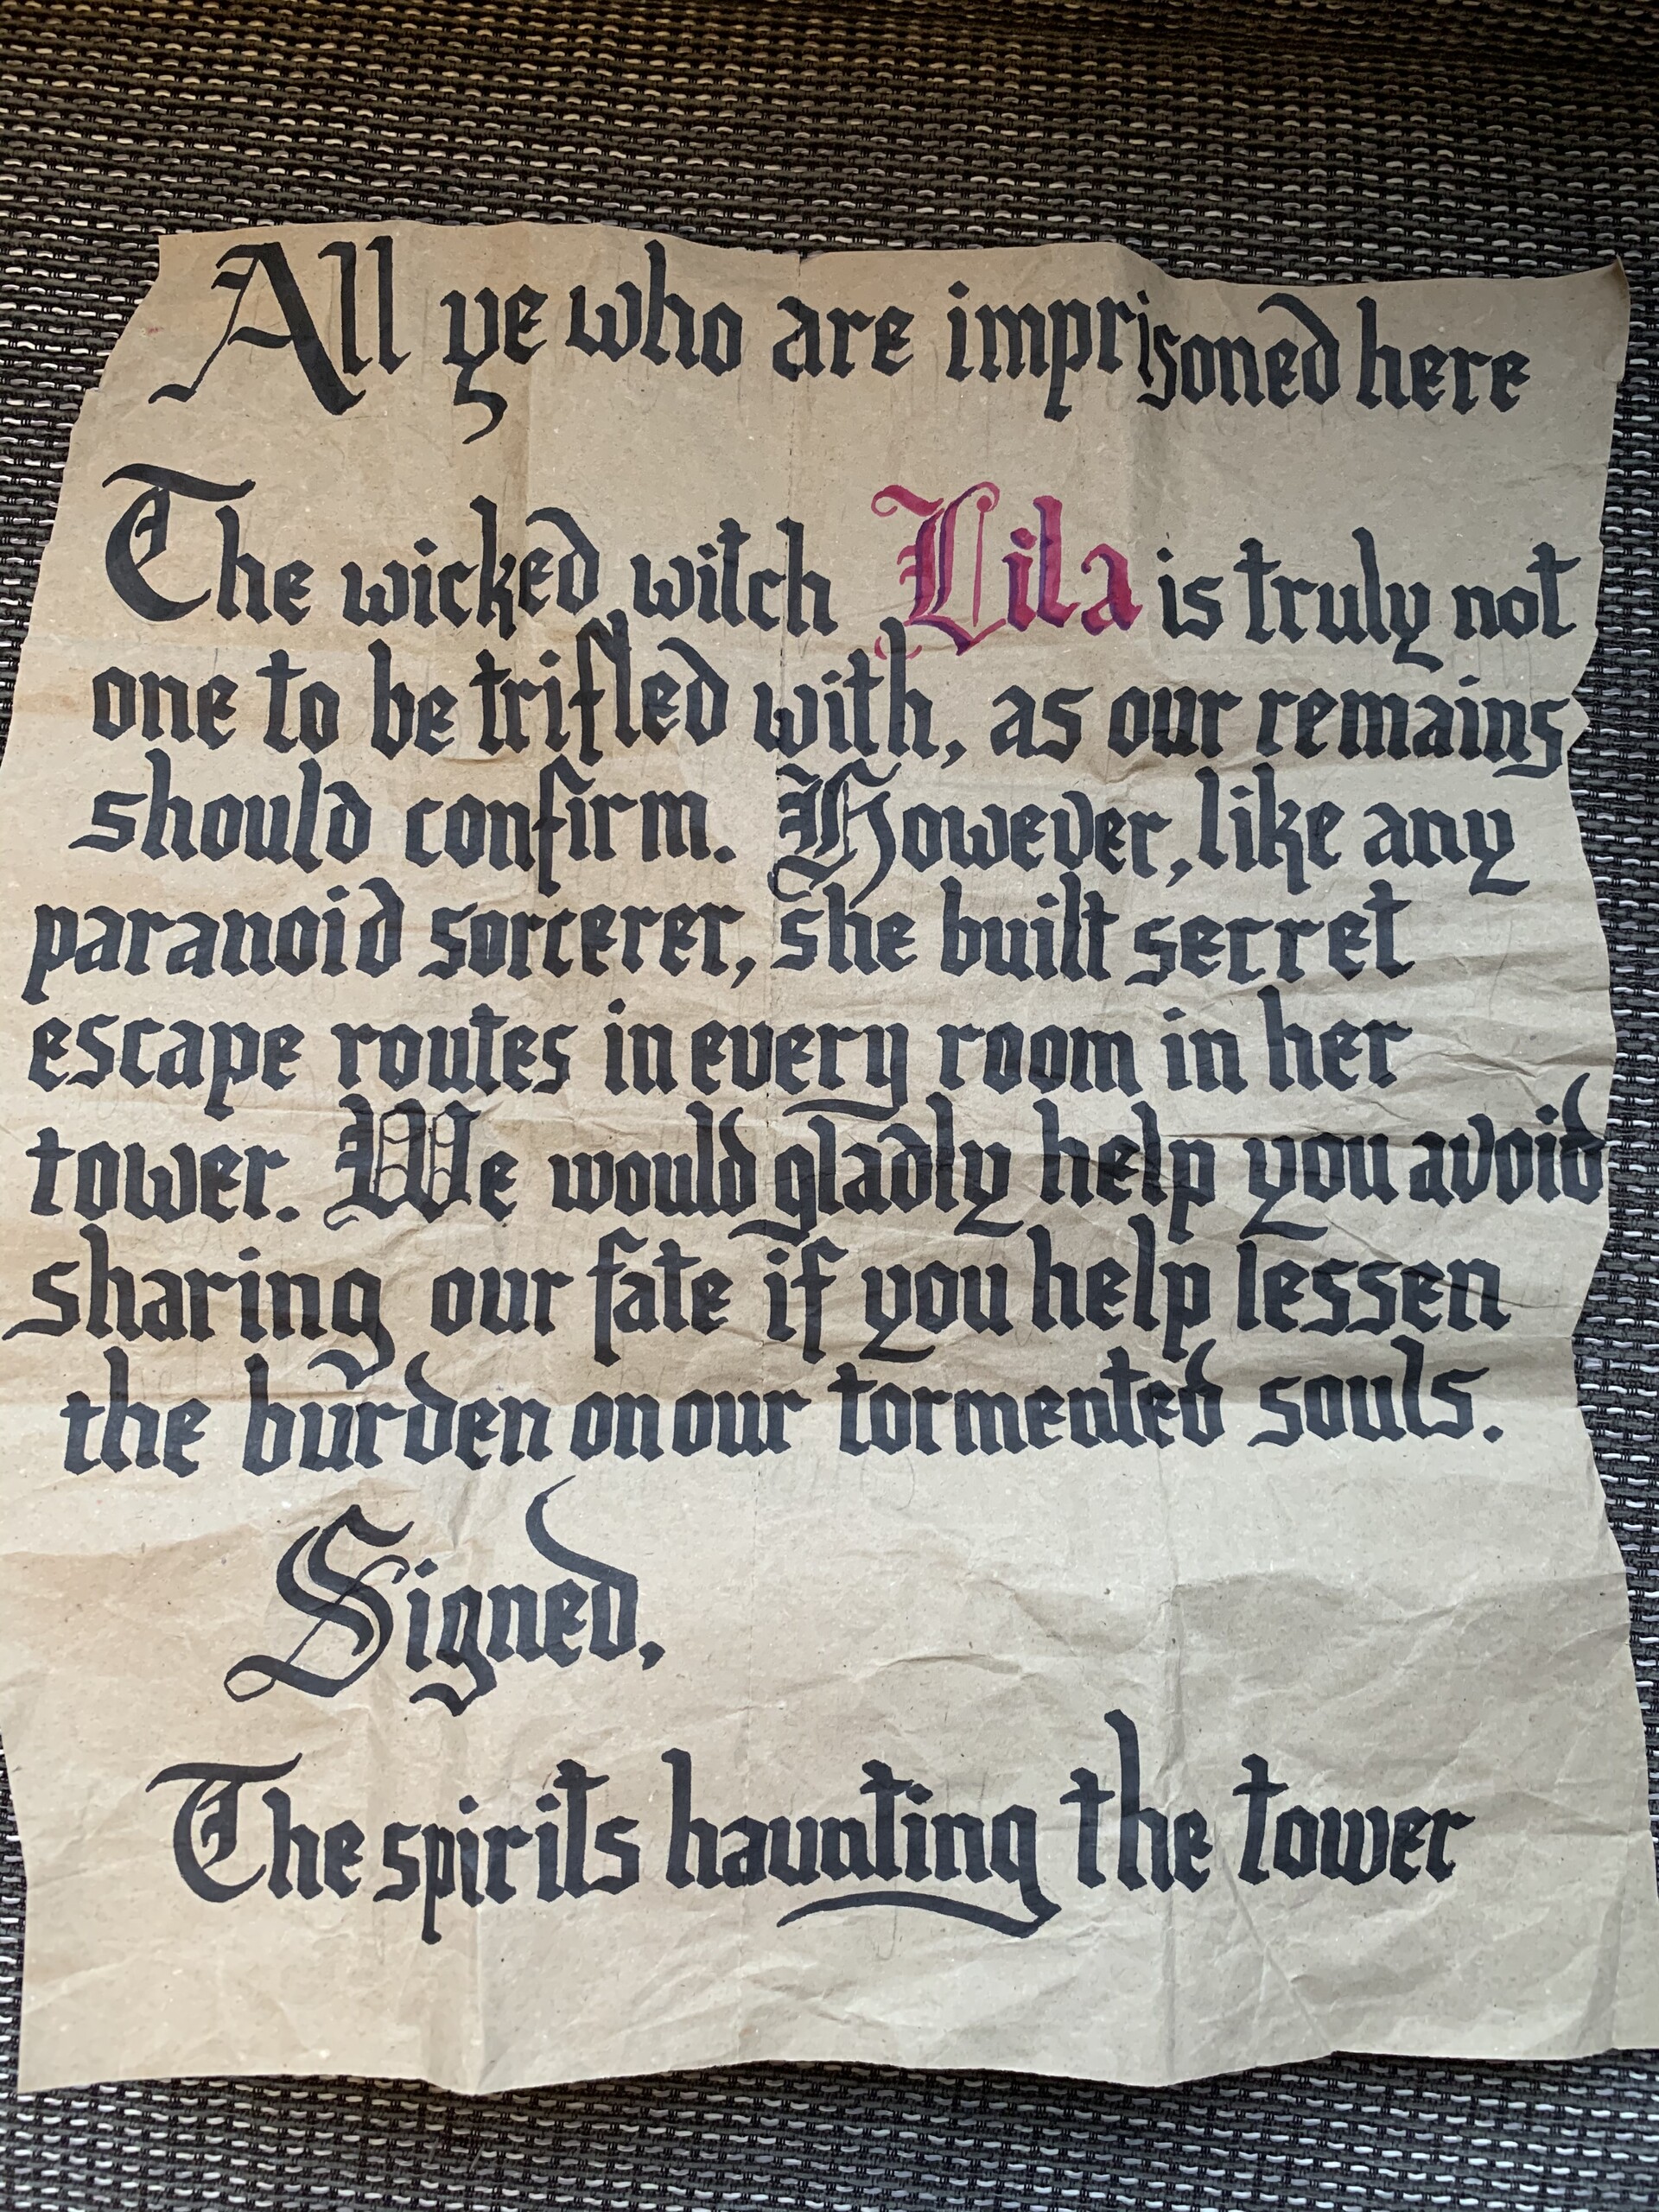 All ye who are imprisoned here
The wicked witch Lila is truly not
one to be trifled with, as our remains
should confirm. However, like any
paranoid sorcerer, she built secret
escape routes in every room in her
tower. We would gladly help you avoid
sharing our fate if you help lessen
the burden on our tormented souls.
Signed,
The spirits haunting the tower